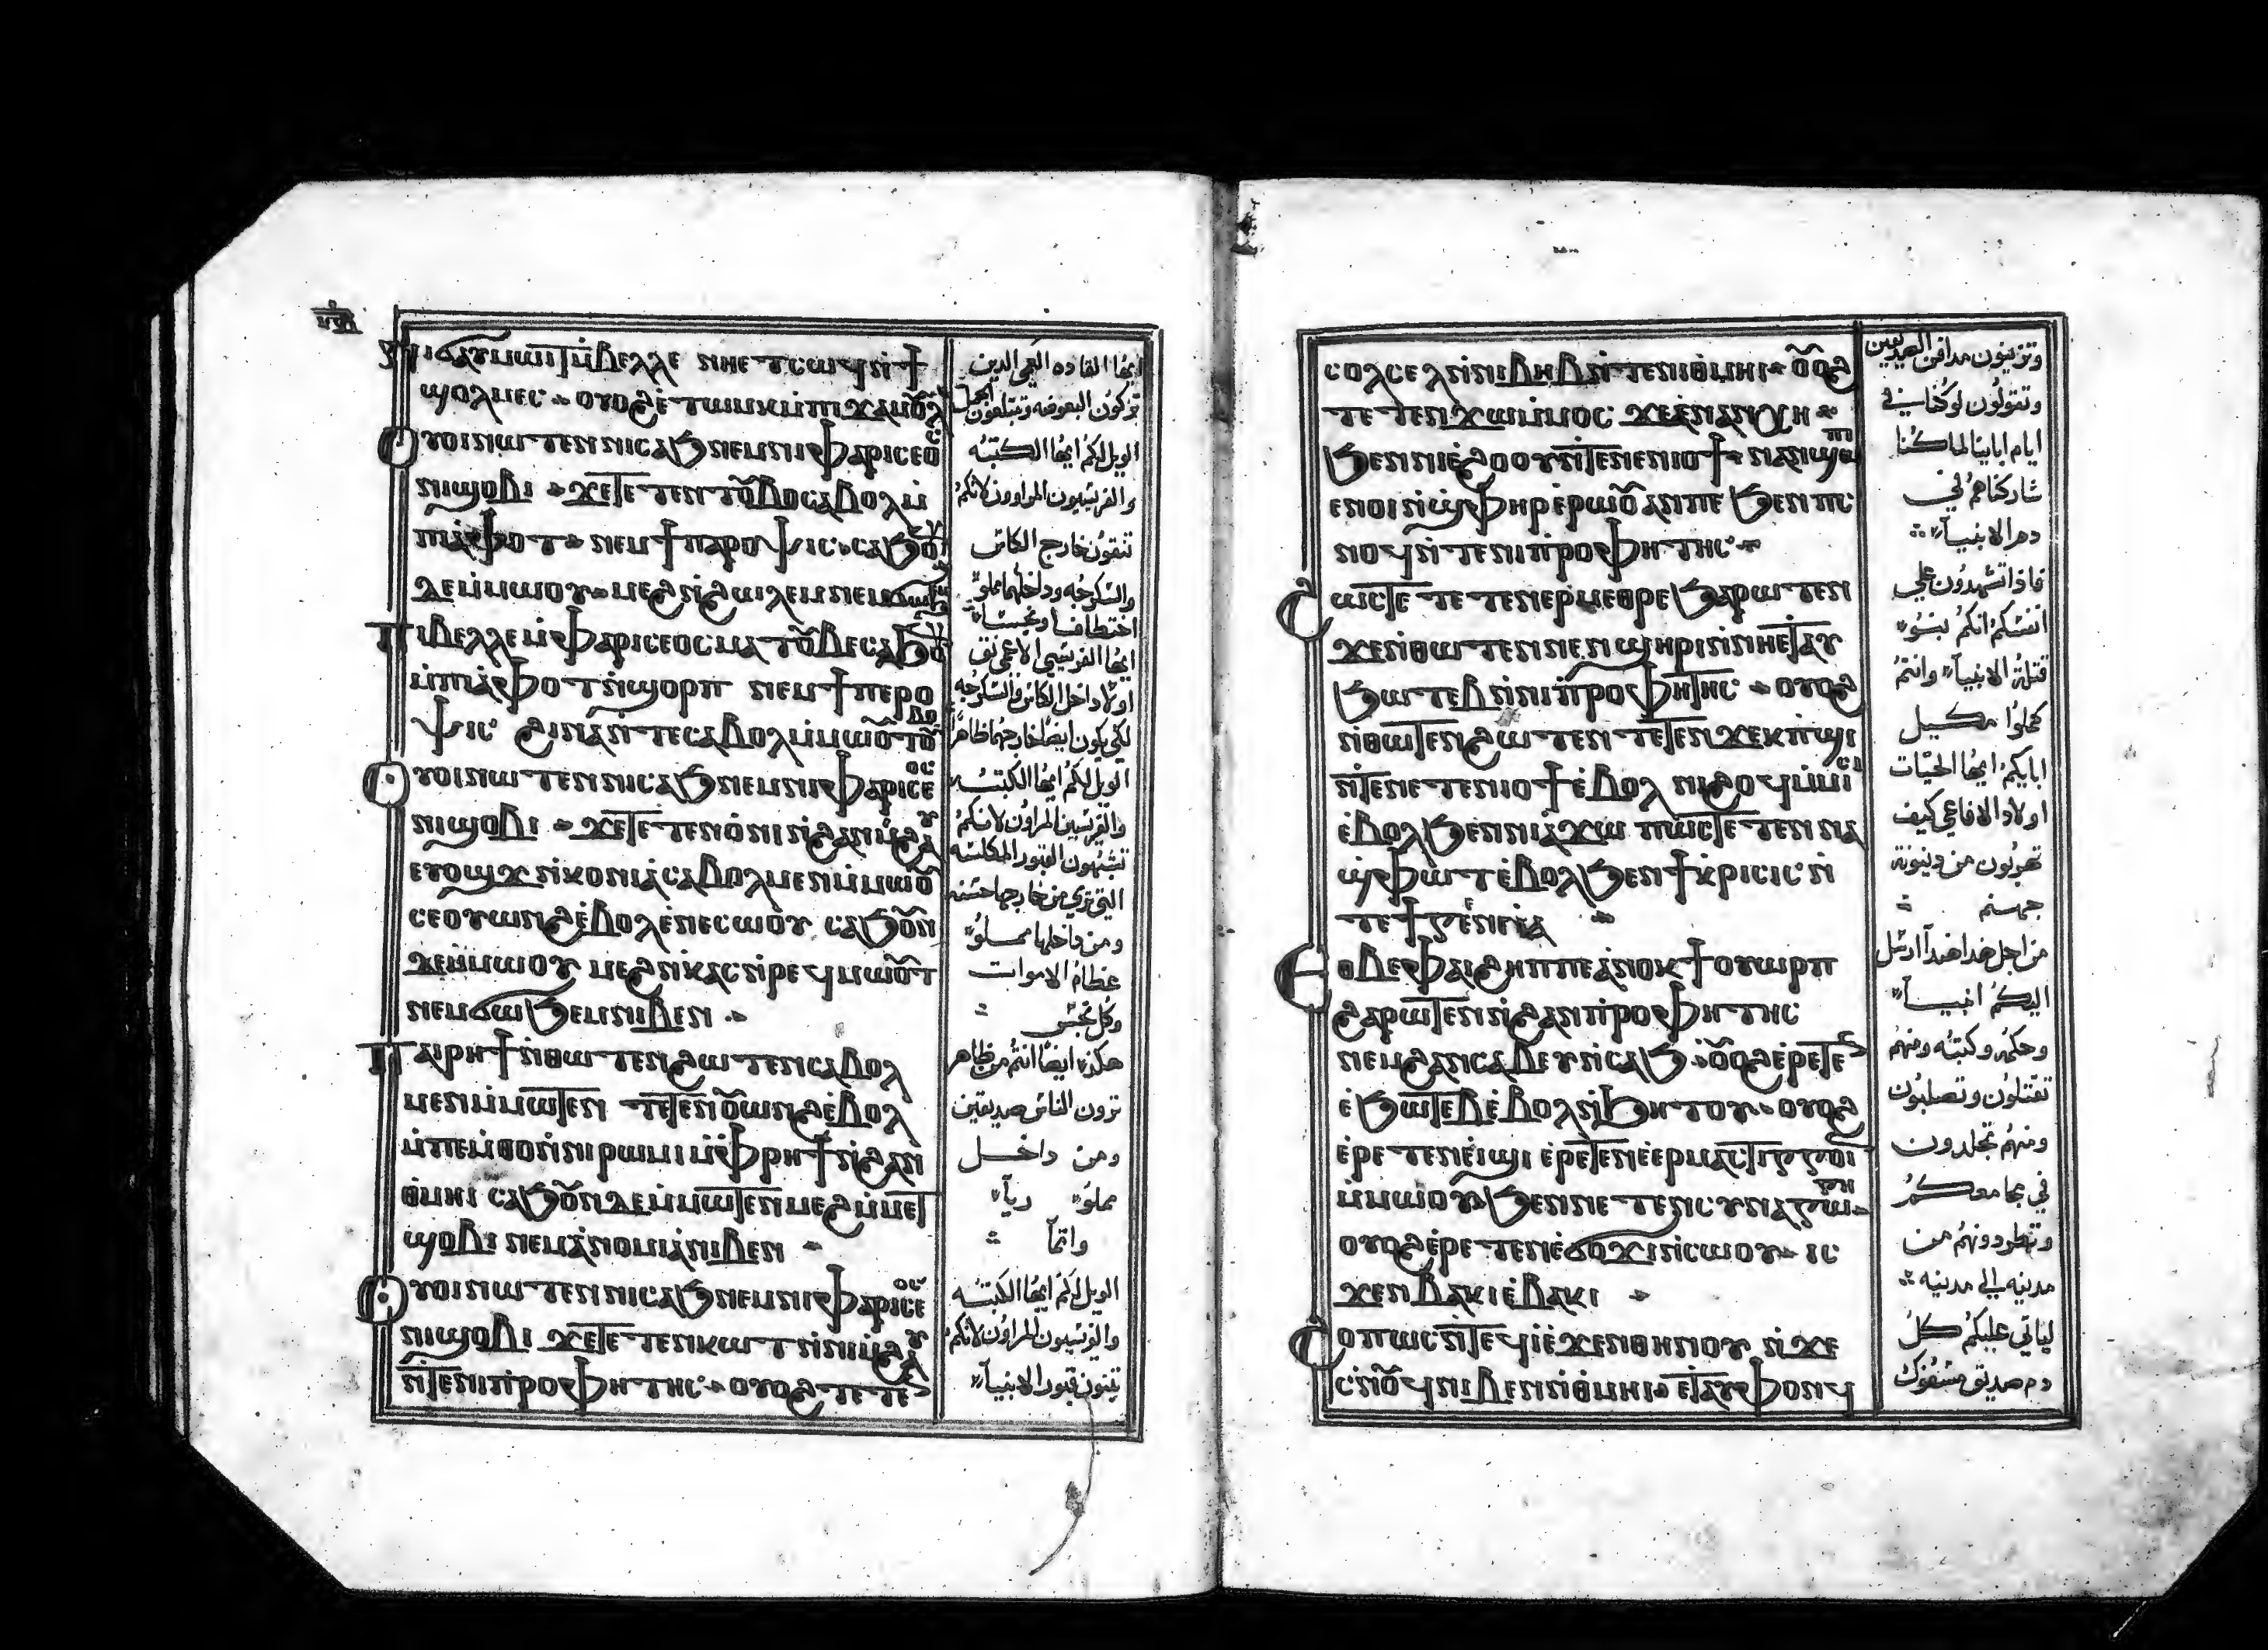 ⲛⲓϭⲁⲩⲙⲱⲓⲧ ⲙ̀ⲃⲉⲗⲗⲉ ⲛⲏⲉⲧⲥⲱϥ ⲛ̀ϯ
ϣⲟⲗⲙⲉⲥ ⲟⲩⲟϩ ⲉⲧⲱⲙⲕ ⲙ̀ⲡⲓϫⲁⲙⲟⲩⲗ
ⲟⲩⲟⲓ ⲛⲱⲧⲉⲛ ⲛⲓⲥⲁϧ ⲛⲉⲙ ⲛⲓⲫⲁⲣⲓⲥⲉⲟⲥ
ⲛⲓϣⲟⲃⲓ ϫⲉ ⲧⲉⲧⲉⲛⲧⲟⲩⲃⲟ ⲥⲁⲃⲟⲗ ⲙ̀
ⲡⲓⲁ̀ⲫⲟⲧ ⲛⲉⲙ ϯⲡⲁⲣⲟⲯⲓⲥ ⲥⲁϧⲟⲩⲛ
ⲇⲉ ⲙ̀ⲙⲱⲟⲩ ⲙⲉϩ ⲛ̀ϩⲱⲗⲉⲙ ⲛⲉⲙ ϭⲱϧⲉⲙ
ⲡⲓⲃⲉⲗⲗⲉ ⲙ̀ⲫⲁⲣⲓⲥⲉⲟⲥ ⲙⲁⲧⲟⲩⲃⲉ ⲥⲁϧⲟⲩⲛ
ⲙ̀ⲡⲓⲁ̀ⲫⲟⲧ ⲛ̀ϣⲟⲣⲡ ⲛⲉⲙ ϯⲡⲉⲣⲟ
ⲯⲓⲥ ϩⲓⲛⲁ ⲛ̀ⲧⲉ ⲥⲁⲃⲟⲗ ⲙ̀ⲙⲱⲟⲩ ⲧⲟⲩⲃⲟ
ⲟⲩⲟⲓ ⲛⲱⲧⲉⲛ ⲛⲓⲥⲁϧ ⲛⲉⲙ ⲛⲓⲫⲁⲣⲓⲥⲉⲟⲥ
ⲛⲓϣⲟⲃⲓ ϫⲉ ⲧⲉⲧⲉⲛⲟ̀ⲛⲓ ⲛ̀ϩⲁⲛⲙ̀ϩⲁⲩ
ⲉⲩⲟϣϫ ⲛ̀ⲕⲟⲛⲓⲁ̀ ⲥⲁⲃⲟⲗ ⲙⲉⲛ ⲙ̀ⲙⲱⲟⲩ
ⲥⲉⲟⲩⲱⲛϩ ⲉ̀ⲃⲟⲗ ⲉⲛⲉⲥⲱⲟⲩ ⲥⲁϧⲟⲩⲛ
ⲇⲉ ⲙ̀ⲙⲱⲟⲩ ⲙⲉϩ ⲛ̀ⲕⲁⲥ ⲛ̀ⲣⲉϥⲙⲱⲟⲩⲧ
ⲛⲉⲙ ϭⲱϧⲉⲙ ⲛⲓⲃⲉⲛ
ⲡⲁⲓⲣⲏϯ ⲛ̀ⲑⲱⲧⲉⲛ ϩⲱⲧⲉⲛ ⲥⲁⲃⲟⲗ
ⲙⲉⲛ ⲙ̀ⲙⲱⲧⲉⲛ ⲧⲉⲧⲉⲛⲟⲩⲱⲛϩ ⲉ̀ⲃⲟⲗ
ⲙ̀ⲡⲉⲙ̀ⲑⲟ ⲛ̀ⲛⲓⲣⲱⲙⲓ ⲙ̀ⲫⲣⲏϯ ⲛ̀ϩⲁⲛ
ⲑⲙⲏⲓ ⲥⲁϧⲟⲩⲛ ⲇⲉ ⲙ̀ⲙⲱⲧⲉⲛ ⲙⲉϩ ⲙ̀ⲙⲉⲧ
ϣⲟⲃⲓ ⲛⲉⲙ ⲁ̀ⲛⲟⲙⲓⲁ̀ ⲛⲓⲃⲉⲛ
ⲟⲩⲟⲓ ⲛⲱⲧⲉⲛ ⲛⲓⲥⲁϧ ⲛⲉⲙ ⲛⲓⲫⲁⲣⲓⲥⲉⲟⲥ
ⲛⲓϣⲟⲃⲓ ϫⲉ ⲧⲉⲧⲉⲛⲕⲱⲧ ⲛ̀ⲛⲓⲙ̀ϩⲁⲩ
ⲛ̀ⲧⲉ ⲛⲓⲡ̀ⲣⲟⲫⲏⲧⲏⲥ ⲟⲩⲟϩ ⲧⲉⲧⲉⲛ
ايها القاده العمي الدين
تركون البعوضه وتبتلعون الجمل
الويل لكم ايها الكتبه
والفريسيون المراوون لانكم
تنقون خارج الكاس
والسكرجه وداخلها مملوّ
اختطافا ونجسًا
ايها الفريسي الاعمى نق
اولا داخل الكاس والسكرجه
لكي يكون ايضا خارجهما ظاهرًا
الويل لكم ايها الكتبه
والفريسين المراوون لانكم
تشبهون القبور المكلسه
التي تري من خارجها حسنه
ومن داخلها مملوّ
عظام الاموات
وكل نجس
هكذا ايضا انتم من ظاهر
ترون الناس صديقين
ومن داخل
مملوّ رياً
واثماً
الويل لكم ايها الكتبه
والفريسيون المراوون لانكم
تبنون قبور الانبيآ
ⲥⲟⲗⲥⲉⲗ ⲛ̀ⲛⲓⲃⲏⲃ ⲛ̀ⲧⲉ ⲛⲓⲑⲙⲏⲓ ⲟⲩⲟϩ
ⲧⲉⲧⲉⲛϫⲱ ⲙ̀ⲙⲟⲥ ϫⲉ ⲉ̀ⲛⲁⲛⲭⲏ
ϧⲉⲛ ⲛⲓⲉ̀ϩⲟⲟⲩ ⲛ̀ⲧⲉ ⲛⲉⲛⲓⲟϯ ⲛⲁⲛϣⲱⲡⲓ
ⲉⲛⲟⲓ ⲛ̀ϣ̀ⲫⲏⲣ ⲉ̀ⲣⲱⲟⲩ ⲁⲛ ⲡⲉ ϧⲉⲛ ⲡⲥ
ⲛⲟϥ ⲛ̀ⲧⲉ ⲛⲓⲡ̀ⲣⲟⲫⲏⲧⲏⲥ
ϩⲱⲥⲧⲉ ⲧⲉⲧⲉⲛⲉⲣⲙⲉⲑⲣⲉ ϧⲁⲣⲱⲧⲉⲛ
ϫⲉ ⲛ̀ⲑⲱⲧⲉⲛ ⲛⲉⲛϣⲏⲣⲓ ⲛ̀ⲛⲏⲉⲧⲁⲩ
ϧⲱⲧⲉⲃ ⲛ̀ⲛⲓⲡ̀ⲣⲟⲫⲏⲧⲏⲥ ⲟⲩⲟϩ
ⲛ̀ⲑⲱⲧⲉⲛ ϩⲱⲧⲉⲛ ⲧⲉⲧⲉⲛϫⲉⲕ ⲡ̀ϣⲓ
ⲛ̀ⲧⲉ ⲛⲉⲧⲉⲛⲓⲟϯ ⲉ̀ⲃⲟⲗ ⲛⲓϩⲟϥ ⲙ̀ⲙⲓⲥⲓ
ⲉ̀ⲃⲟⲗ ϧⲉⲛ ⲛⲓⲁ̀ϫⲱ ⲡⲱⲥ ⲧⲉⲧⲉⲛⲛⲁ
ϣ̀ⲫⲱⲧ ⲉ̀ⲃⲟⲗ ϧⲉⲛ ϯⲕ̀ⲣⲓⲥⲓⲥ ⲛ̀
ⲧⲉ ϯⲅⲉⲉⲛⲛⲁ
ⲉⲑⲃⲉ ⲫⲁⲓ ϩⲏⲡⲡⲉ ⲁ̀ⲛⲟⲕ ϯⲟⲩⲱⲣⲡ
ϩⲁⲣⲱⲧⲉⲛ ⲛ̀ϩⲁⲛⲡ̀ⲣⲟⲫⲏⲧⲏⲥ
ⲛⲉⲙ ϩⲁⲛⲥⲁⲃⲉⲩ ⲛ̀ⲥⲁϧ ⲟⲩⲟϩ ⲉ̀ⲣⲉⲧⲉⲛ
ⲉ̀ϧⲱⲧⲉⲃ ⲉ̀ⲃⲟⲗ ⲛ̀ϧⲏⲧⲟⲩ ⲟⲩⲟϩ
ⲉ̀ⲣⲉⲧⲉⲛⲉ̀ⲓϣⲓ ⲉ̀ⲣⲉⲧⲉⲛⲉ̀ⲉⲣⲙⲁⲥⲧⲓⲅⲅⲟⲓⲛ
ⲙ̀ⲙⲱⲟⲩ ϧⲉⲛ ⲛⲉⲧⲉⲛⲥⲩⲛⲁⲅⲱⲅⲏ
ⲟⲩⲟϩ ⲉ̀ⲣⲉⲧⲉⲛⲉ̀ϭⲟϫⲓ ⲛ̀ⲥⲱⲟⲩ ⲓⲥ
ϫⲉⲛ ⲃⲁⲕⲓ ⲉ̀ⲃⲁⲕⲓ
ϩⲟⲡⲱⲥ ⲛ̀ⲧⲉϥⲓ̀ ⲉ̀ϫⲉⲛ ⲑⲏⲛⲟⲩ ⲛ̀ϫⲉ
ⲥ̀ⲛⲟϥ ⲛⲓⲃⲉⲛ ⲛ̀ⲑⲙⲏⲓ ⲉⲧⲁⲩⲫⲟⲛϥ
وتزينون مدافن الصديقين
وتقولون لو كنا في
ايام اباينا لما كنا
شاركناهم في
دم الانبيآ
فاذا تشهدون علي
انفسكم انكم بنو
قتلة الانبيآ وانتم
كملوا مكيل
ابايكم ايها الحيّات
اولاد الافاعي كيف
تهربون من دينونة
جهنم
من اجل هدا هندا ارسل
اليكم انبيآ
وحكمه وكتبه ومنهم
تقتلون وتصلبون
ومنهم تجلدون
في مجامعكم
وتطردونهم من
مدينه الي مدينه
لياتي عليكم كل
دم صديق مسفوك